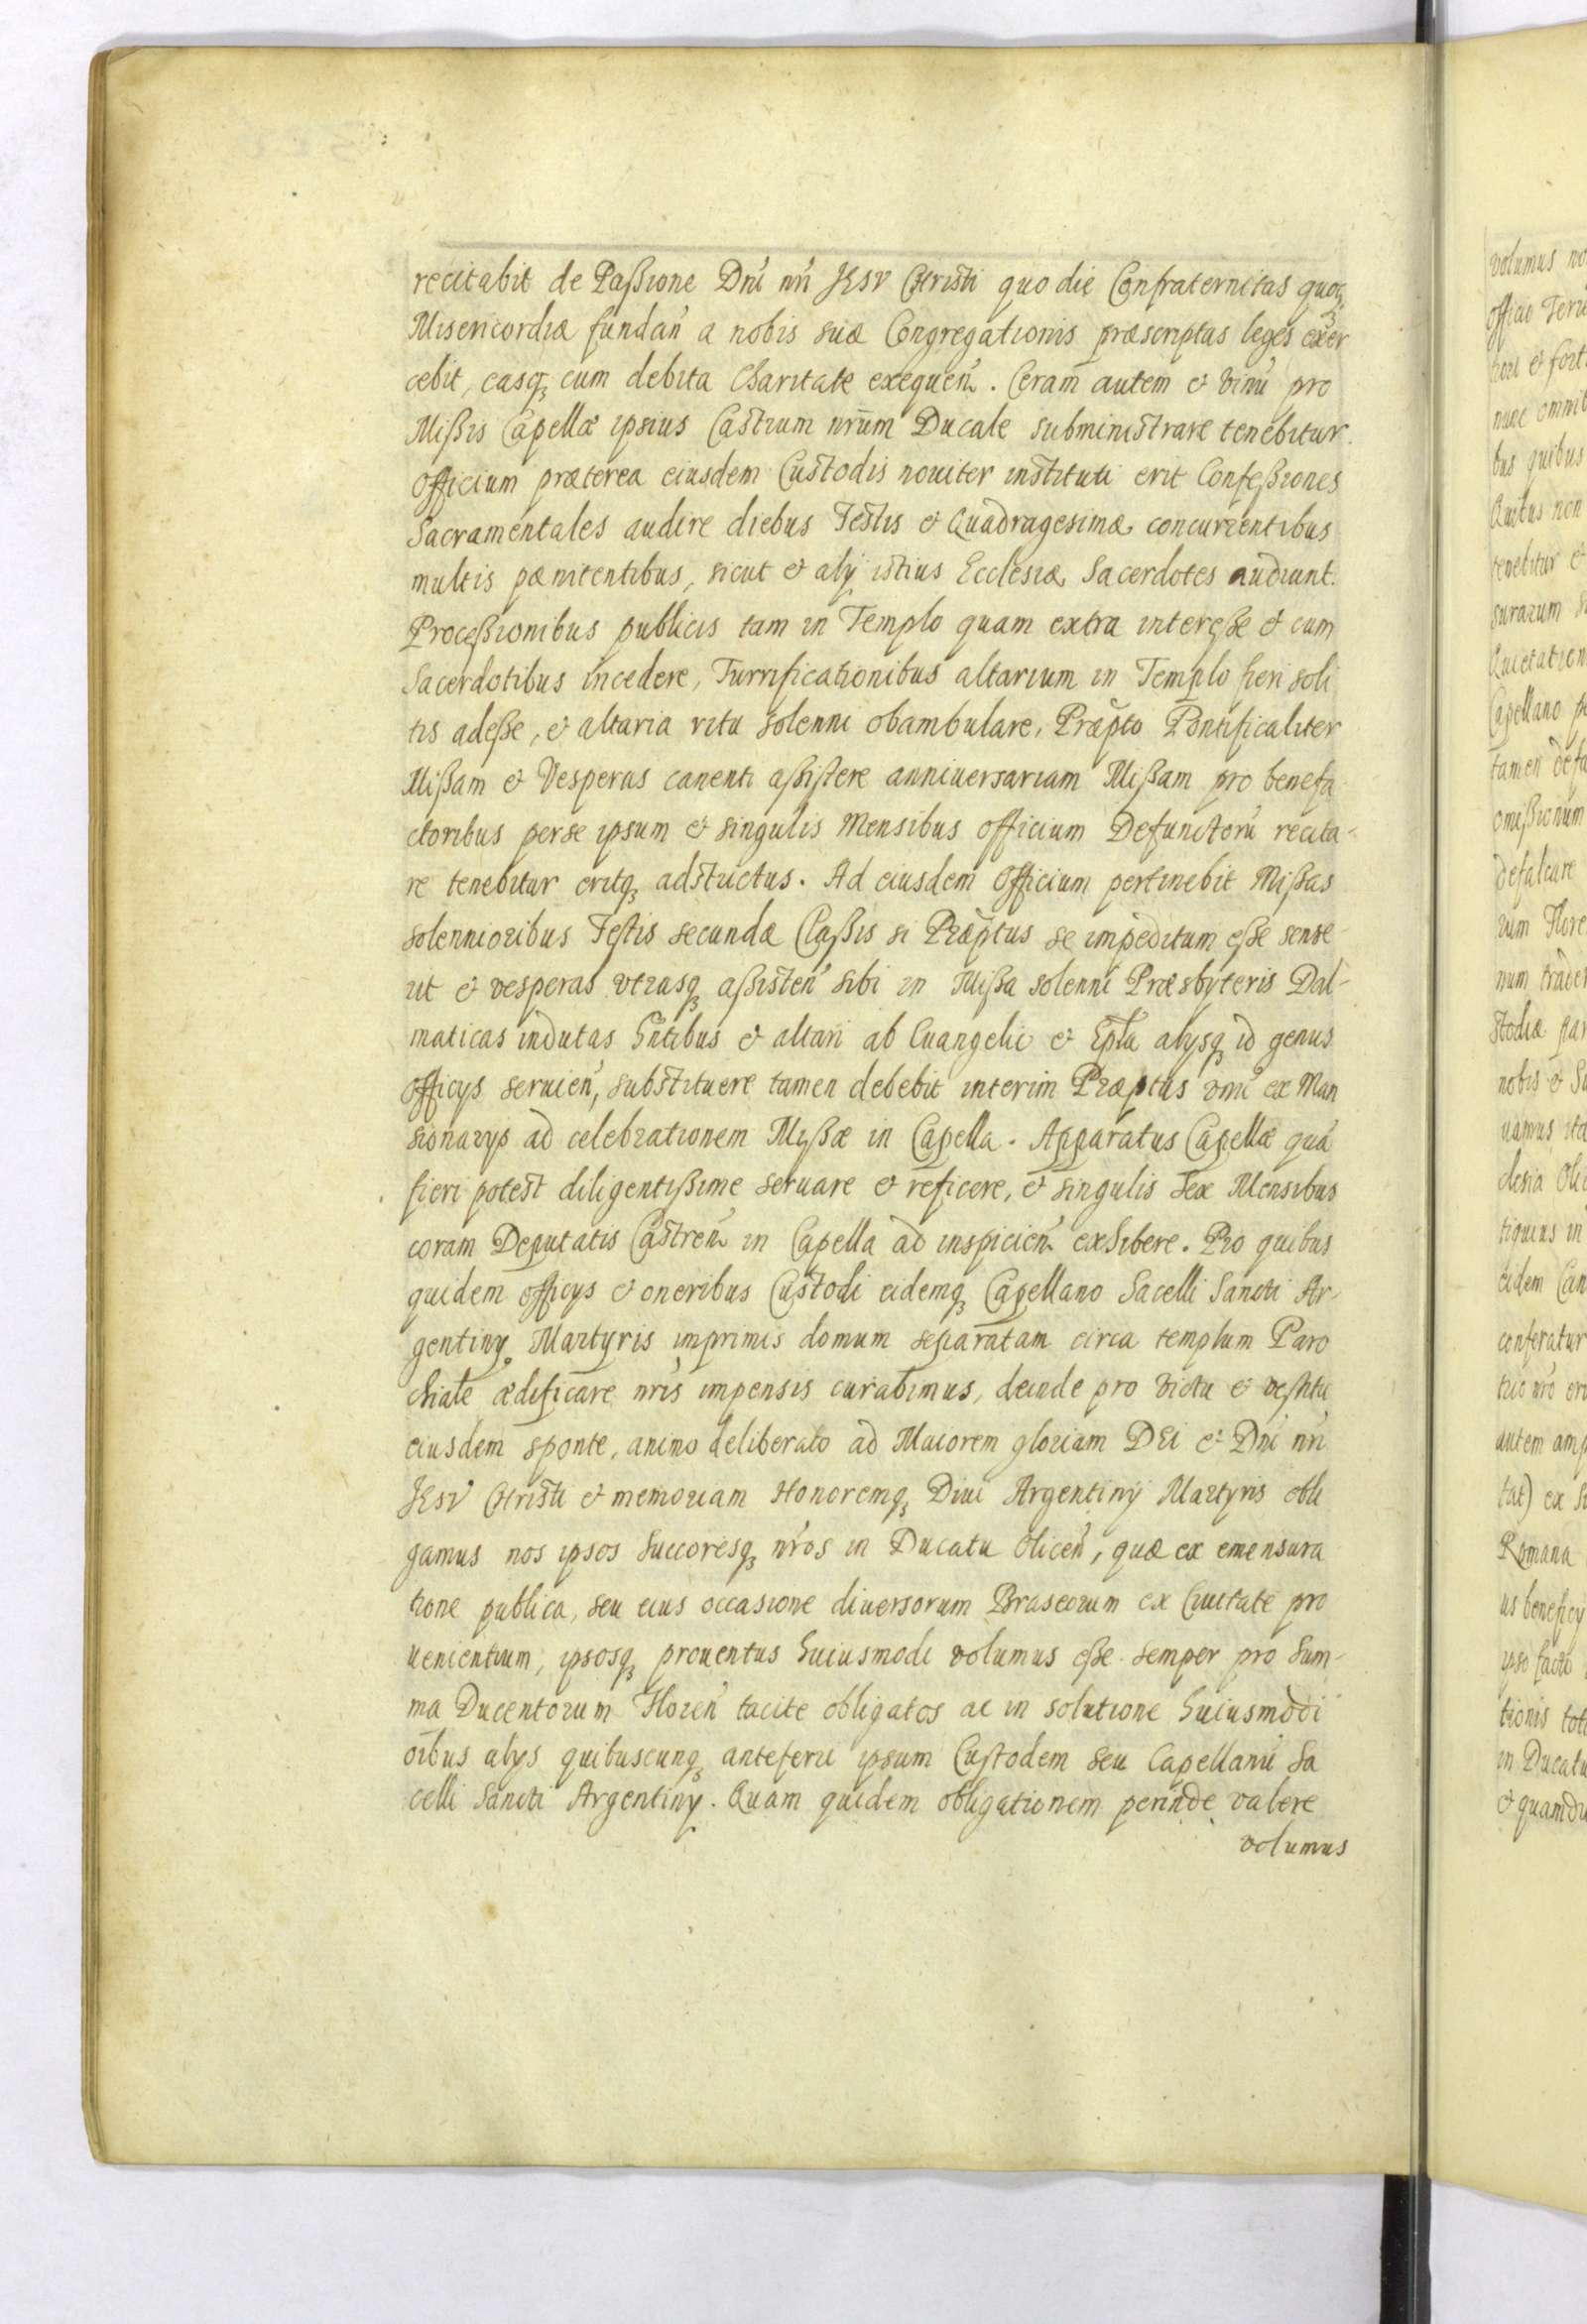 recitabit de Paßione Dñi nri JESV Christi quo die Confraternitas quoq₃
Misericordiæ fundan̄ a nobis suæ Congregationis præscriptas leges exer
cebit, easq₃ cum debita Charitate exequen̄. Ceram autem et vinū pro
Mißis Capellæ ipsius Castrum nr̄um Ducale subministrare tenebitur.
Officium præterea eiusdem Custodis nouiter instituti erit Confeßiones
Sacramentales audire diebus Festis et Quadragesimæ concurrentibus
multis pænitentibus, sicut et alÿ istius Ecclesiæ Sacerdotes audiunt.
Proceßionibus publicis tam in Templo quam extra intereße et cum
Sacerdotibus incedere, Turrificationibus altarium in Templo fieri soli
tis adeße, et altaria ritu solenni obambulare, Præp̄to Pontificaliter
Mißam et Vesperas canenti aßistere anniuersariam Mißam pro benefa
ctoribus perse ipsum et singulis Mensibus officium Defunctorū recita-
re tenebitur eritq₃ adstrictus. Ad eiusdem Officium pertinebit Mißas
solennioribus Festis secundæ Claßis si Præp̄tus se impeditum eße sense-
rit et vesperas vtrasq₃ aßisten̄ sibi in Mißa solenni Præsbyteris Dal-
maticas indutas hn̄tibus et altari ab Euangelii et Ep̄la alÿsq₃ id genus
officÿs seruien̄, substituere tamen debebit interim Præp̄tus vnū ex Man
sionarÿs ad celebrationem Mißæ in Capella. Apparatus Capellæ quā
fieri potest diligentißime seruare et reficere, et singulis sex Mensibus
coram Deputatis Castren̄ in Capella ad inspicien̄ exhibere. Pro quibus
quidem officÿs et oneribus Custodi eidemq₃ Capellano Sacelli Sancti Ar-
gentinÿ Martyris imprimis domum separatam circa templum Paro
chiale ædificare nris impensis curabimus, deinde pro victu et vestitu
eiusdem sponte, animo deliberato ad Maiorem gloriam DEi et Dñi nri
JESV Christi et memoriam Honoremq₃ Diui Argentinÿ Martyris obli
gamus nos ipsos Succoresq₃ nr̄os in Ducatu Olicen̄, quæ ex emensura
tione publica, seu eius occasione diuersorum Braseorum ex Ciuitate pro
uenientium, ipsosq₃ prouentus huiusmodi volumus eße semper pro Sum-
ma Ducentorum Floren̄ tacite obligatos ac in solutione huiusmodi
oībus alÿs quibuscunq₃ anteferri ipsum Custodem seu Capellanū Sa
celli Sancti Argentinÿ. Quam quidem obligationem perinde valere
volumus